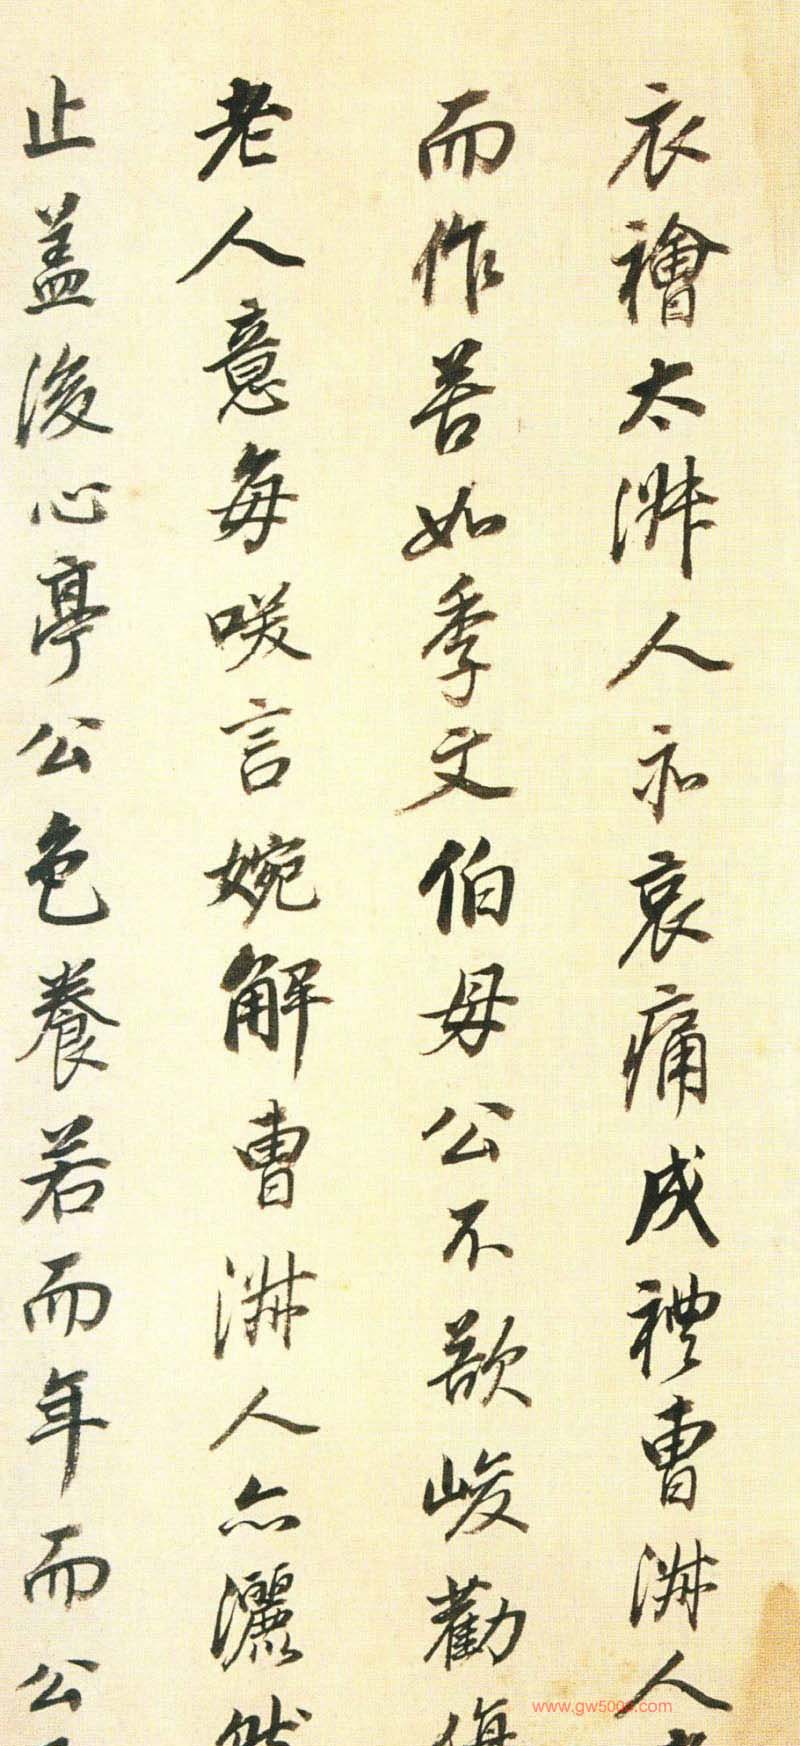 衣襘太淑人亦哀痛成禮曹淑人
而作苦如季文伯母公不欲峻勸
老人意每咲言婉解曹淑人亦灑然
止盖後心亭公色養若而年而公
www.gw5000.com